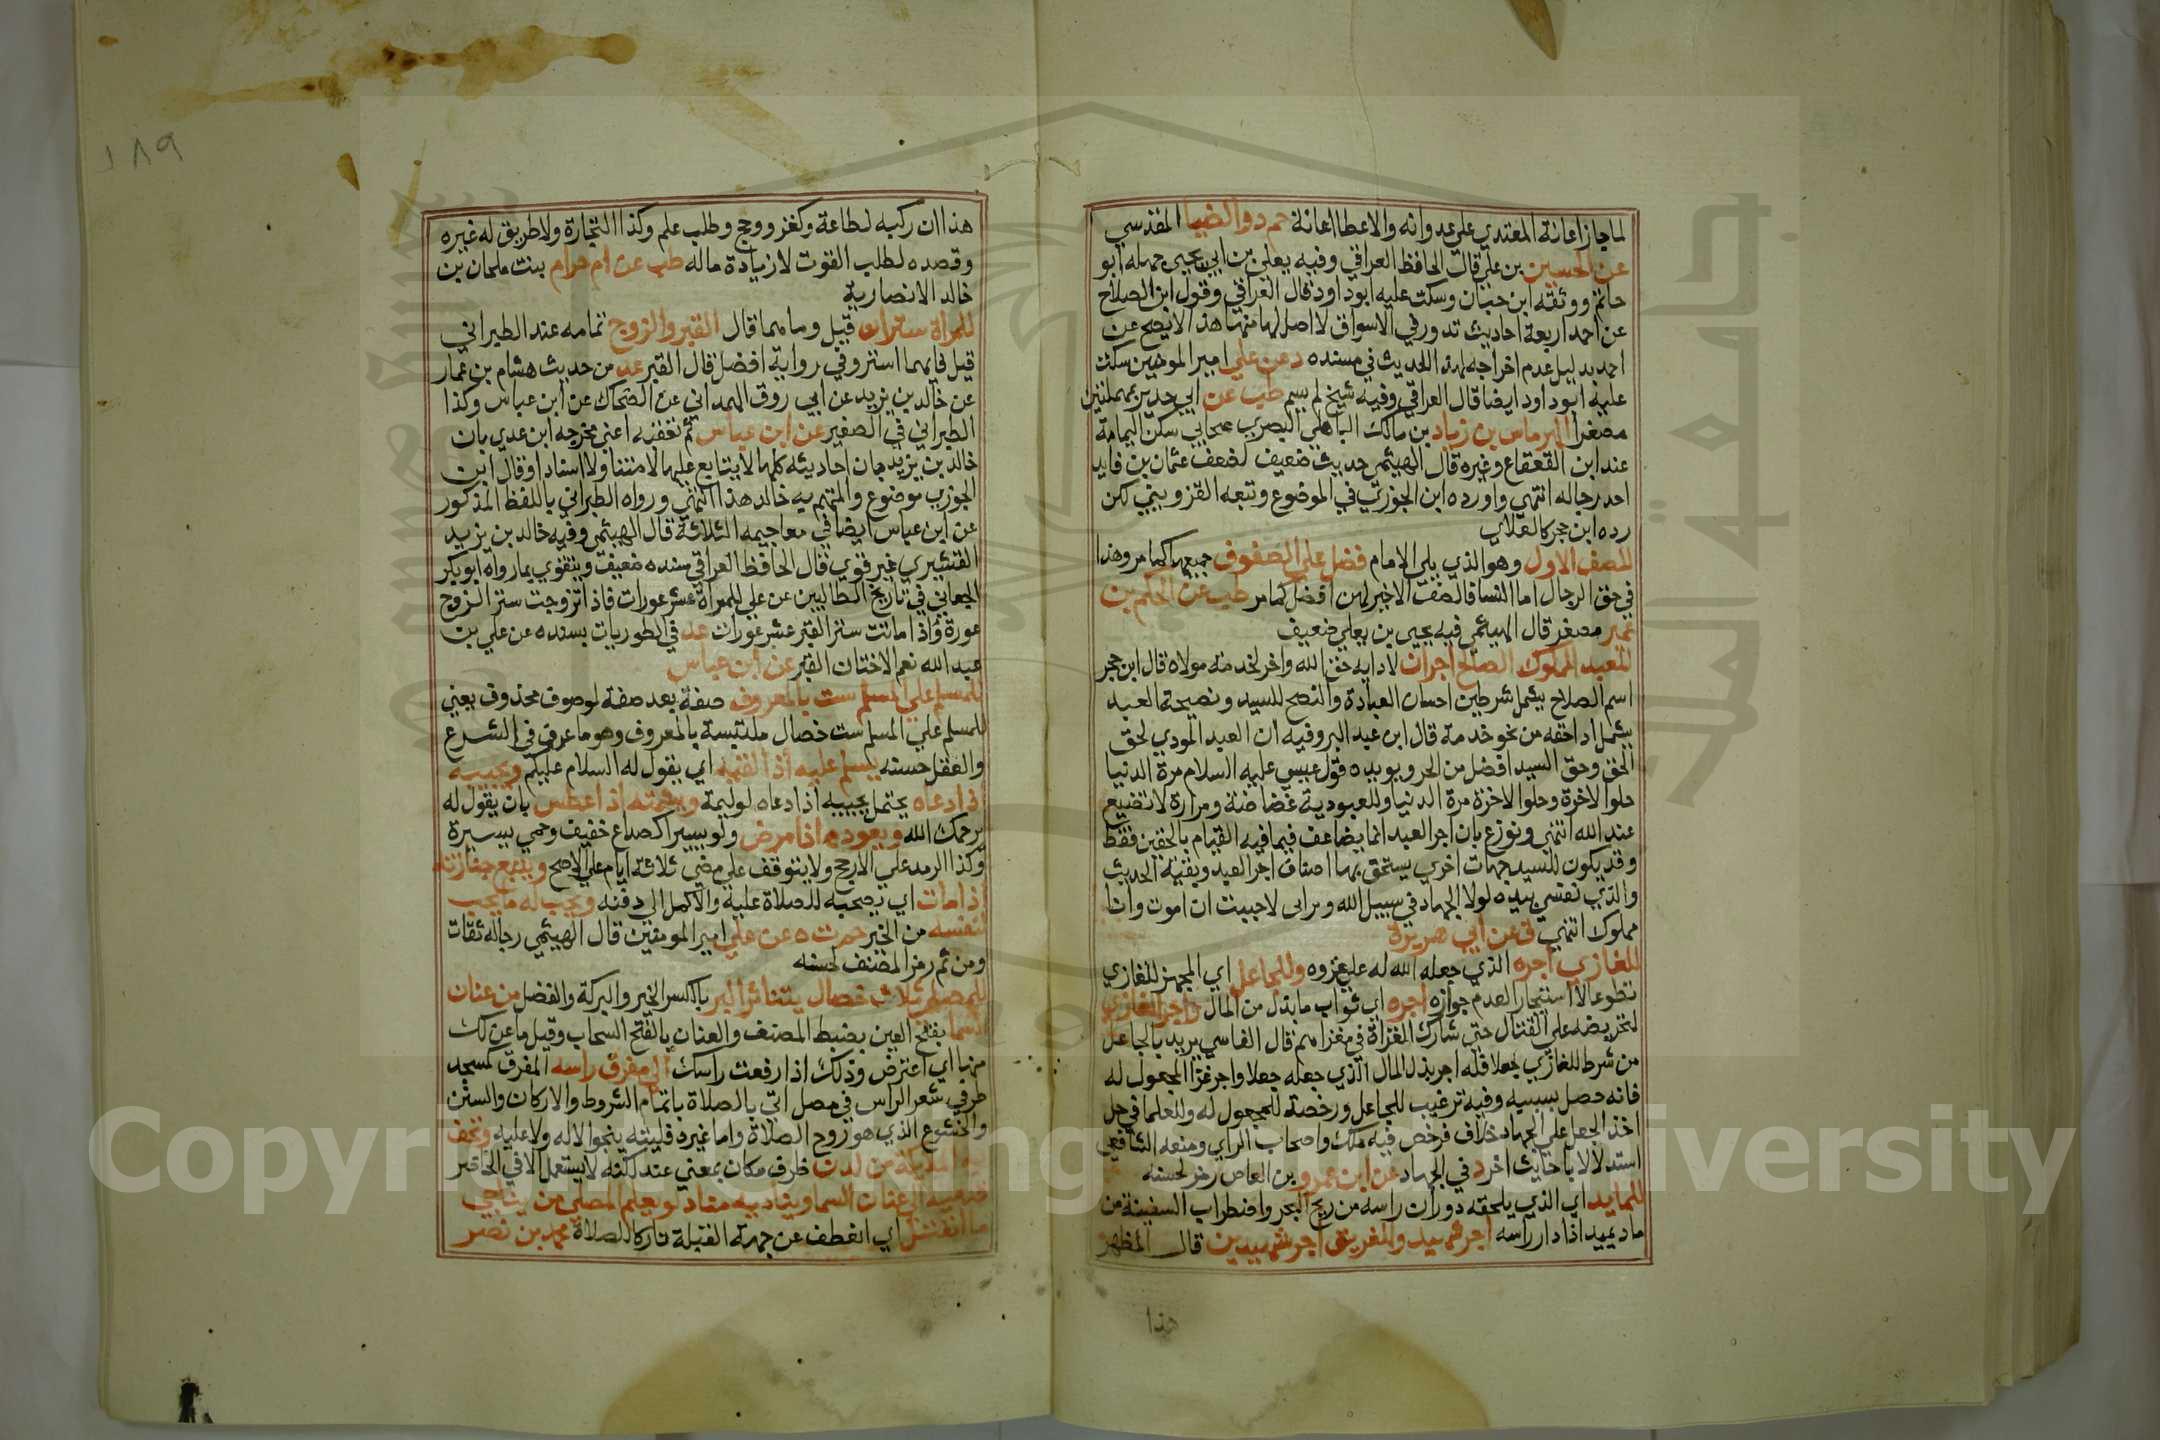 لما جاز اعانة المعتدي علي عدوانه والاعطا اعانة حم د والضيا المقدسي
عن الحسين بن علي قال الحافظ العراقي وفيه يعلي بن ابي يحيي جهله ابو
حاتم ووثقه ابن حبان وسكت عليه ابو داود قال العراقي وقول ابن الصلاح
عن احمد اربعة احاديث تدور في الاسواق لا اصل لها منها هذا لا يصح عن
احمد بدليل عدم اخراجه لهذ الحديث في مسنده د عن علي امير الموهين سكت
عليه ابو داود ايضا قال العراقي وفيه شيخ لم يسم طب عن ابي حدير بمهملتين
مصغرا الهرماس بن زياد بن مالك الباهلي البصري صحابي سكن اليمامة
عند ابن القعقاع وغيره قال الهيثمي حديث ضعيف لضعف عثمان بن فايد
احد رجاله انتهي واورده ابن الجوزي في الموضوع وتبعه القزويني لكن
رده ابن حجر كالعلاي
للصف الاول وهو الذي يلي الامام فضل علي الصفوف جميعها كما مر وهذا
في حق الرجال اما النسا فالصف الاخير لهن افضل كما مر طب عن الحكم بن
عمير مصغر قال الهيثمي فيه يحيي بن يعلي ضعيف
للعبد المملوك الصالح اجران لادايه حق الله واخر لخدمة مولاه قال ابن حجر
اسم الصلاح يشمل شرطين احسان العبادة والنصح للسيد ونصيحة العبد
يشمل اداحقه من نحو خدمة قال ابن عبد البر وفيه ان العبد المودي لحق
الحق وحق السيد افضل من الحر ويويده قول عيسي عليه السلام مرة الدنيا
حلوا الاخرة وحلوا الاخرة مرة الدنيا وللعبودية غضاضة ومرارة لا تضيع
عند الله انتهي ونوزع بان اجر العبد انما يضاعف فيما فيه القيام بالحقين فقط
وقد يكون للسيد جهات اخري يستحق بها اضعاف اجر العبد وبقية الحديث
والذي نفسي بيده لولا الجهاد في سبيل الله وبر امي لاحببت ان اموت وانا
مملوك انتهي ق عن ابي هريرة
للغازي اجره الذي جعله الله له علي غزوه وللجاعل اي المجهز للغازي
تطوعا لا استيجار العدم جوازه اجره اي ثواب ما بذل من المال واجر الغازي
لتحريضه علي القتال حتي شارك الغزاة في مغزاهم قال القاسي يريد بالجاعل
من شرط للغازي جعلا فله اجر بذل المال الذي جعله جعلا واجر غزا المجعول له
فانه حصل بسببه وفيه ترغيب للجاعل ورخصة للمجعول له وللعلما في حل
اخذ الجعل علي الجهاد خلاف فرخص فيه ملك واصحاب الراي ومنعه الشافعي
استدلالا باحايث اخر د في الجهاد عن ابن عمرو بن العاص رمز لحسنه
للمايد اي الذي يلحقه دوران راسه من ريح البحر واضطراب السفينة من
ماد يميد اذا دار راسه اجر شهيد وللغريق اجر شهيدين قال المظهر
هذا
١٨٩
هذا ان ركبه لطاعة وكغزو وحج وطلب علم وكذا التجارة ولا طريق له غيره
وقصده لطلب القوت لا زيادة ماله طب عن ام حرام بنت ملحان بن
خالد الانصارية
للمراة ستران قيل وما هما قال القبر والزوج تمامه عند الطبراني
قيل فايهما استر وفي رواية افضل قال القبر عد من حديث هشام بن عمار
عن خالد بن يزيد عن ابي روق الهمداني عن الضحاك عن ابن عباس وكذا
الطبراني في الصغير عن ابن عباس ثم تعقبه اعني مخرجه ابن عدي بان
خالد بن يزيد جان احاديثه كلها لا يتابع عليها لا متنا ولا اسنادا وقال ابن
الجوزي موضوع والمتهم به خالد هذا انتهي ورواه الطبراني باللفظ المذكور
عن ابن عباس ايضا في معاجيمه الثلاثة قال الهيثمي وفيه خالد بن يزيد
القشيري غير قوي قال الحافظ العراقي سنده ضعيف ويتقوي بما رواه ابو بكر
الجعابي في تاريخ الطالبين عن علي للمراة عشر عورات فاذا تزوجت ستر الزوج
عورة واذا ماتت ستر القبر عشر عورات عد في الطوريات بسنده عن علي بن
عبد الله نعم الاختان القبر عن ابن عباس
للمسلم علي المسلم ست بالمعروف صفة بعد صفة لموصوف محذوف يعني
للمسلم علي المسلم ست خصال ملتبسة بالمعروف وهو ما عرف في الشرع
والعقل حسنه يسلم عليه اذا لقيه اي يقول له السلام عليكم ويجيبه
اذا دعاه يحتمل يجيبه اذا دعاه لوليمة ويشمته اذا عطس بان يقول له
يرحمك الله ويعوده اذا مرض ولو يسيرا كصداع خفيف وحمي يسيرة
وكذا الرمد علي الارجح ولا يتوقف علي مضي ثلاثة ايام علي الاصح ويتبع جنازته
اذا مات اي يصحبه للصلاة عليه والاكمل الي دفنه ويحب له ما يحب
لنفسه من الخير حم ت ه عن علي امير المومنين قال الهيثمي رجاله ثقات
ومن ثم رمز المصنف لحسنه
للمصلي ثلاث خصال يتناثر البر بالكسر الخير والبركة والفضل من عنان
السما بفتح العين بضبط المصنف والعنان بالفتح السحاب وقيل ما عن لك
منها اي اعترض وذلك اذا رفعت راسك الي مفرق راسه المفرق كمسجد
طرفي شعر الراس في مصل اتي بالصلاة باتمام الشروط والاركان والسنن
والخشوع الذي هو روح الصلاة واما غيره فليته ينجوا لا له ولا عليه وتحف
به الملايكة من لدن ظرف مكان بمعني عند لكنه لا يستعمل الا في الحاضر
قدميه الي عنان السما ويناديه مناد لو يعلم المصلي من يناجي
ما انفتل اي انعطف عن جهة القبلة تاركا للصلاة محمد بن نصر